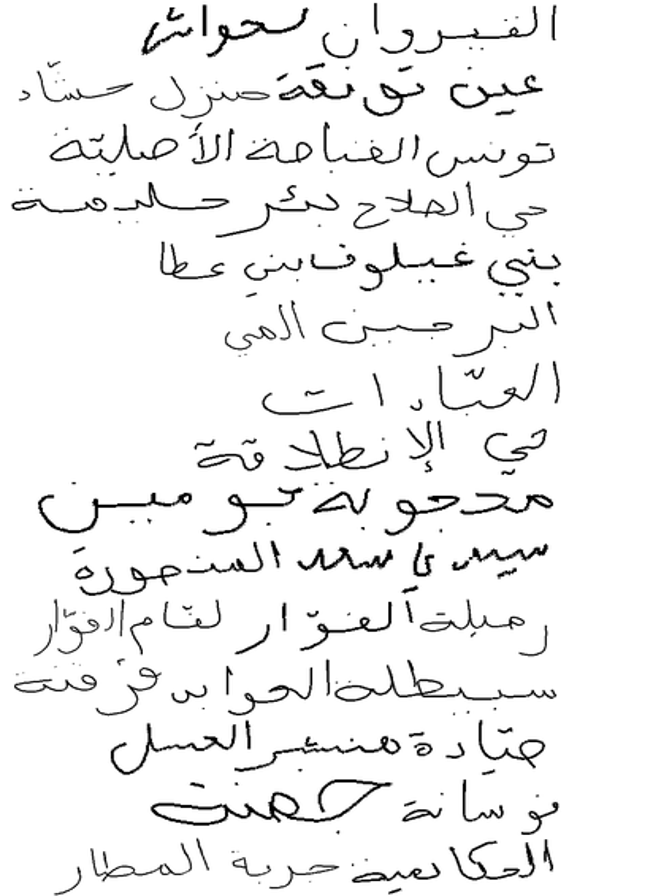 القيروان
عين تونقة منزل حشّاد
تونس القباضة الأصليّة
حي الصلاح بئر حليمة
بني غيلوف بني عطا
البرجين المي
العبّادات
حي الإنطلاقة
بومين
سيدي سعد المنصورة
رميلة الفوّار لقام الفوّار
سبيطلة قرقنة
صيّادة هنشير العسل
نوسانة
جربة المطار